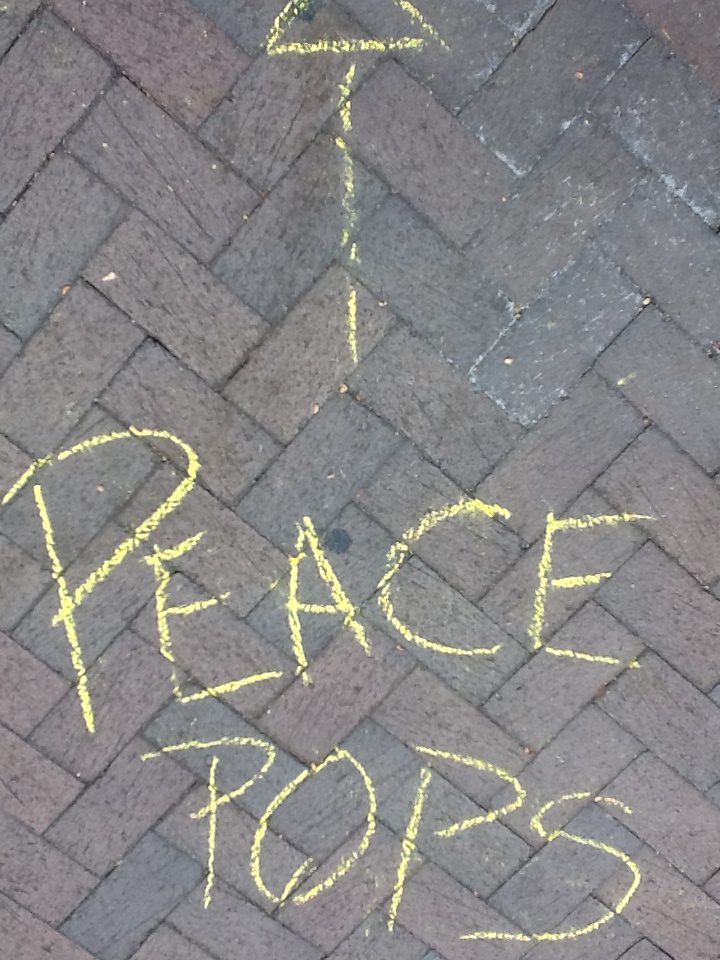 PEACE
POPS